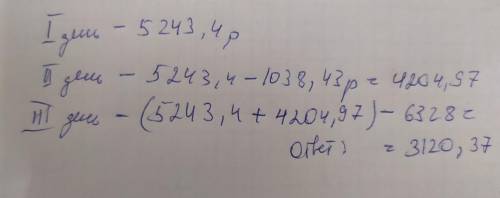 I день – 5243,4р
II день – 5243,4 – 1038,43р = 4204,97
III день – (5243,4 + 4204,97) – 6328 =
Ответ: = 3120,37